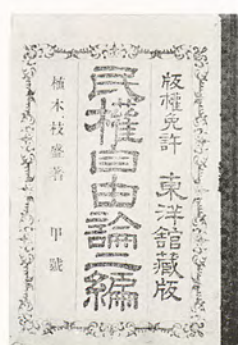 版權免許 東洋館藏版
民權自由論二編
植木枝盛著 甲號